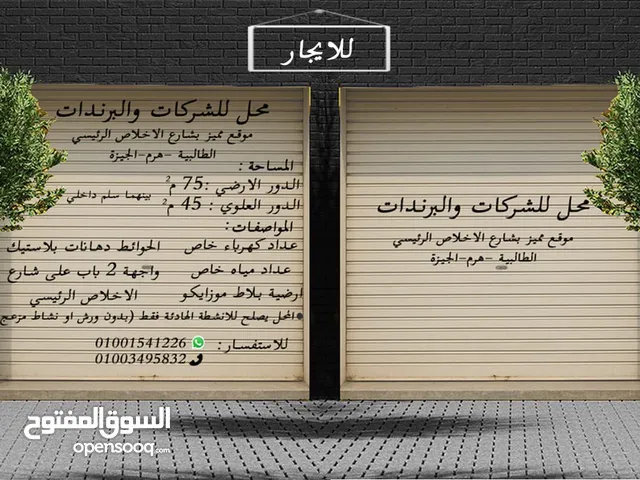 للايجار
محل للشركات والبرندات
موقع مميز بشارع الاخلاص الرئيسي
الطالبية -هرم-الجيزة
المساحة :
الدور الارضي :75 م²
الدور العلوي : 45 م²
بينهما سلم داخلي
المواصفات:
عداد كهرباء خاص الحوائط دهانات بلاستيك
عداد مياه خاص واجهة 2 باب على شارع
ارضية بلاط موزايكو الاخلاص الرئيسي
المحل يصلح للانشطة الهادئة فقط (بدون ورش او نشاط مزعج
للاستفسار : 01001541226
01003495832
محل للشركات والبرندات
موقع مميز بشارع الاخلاص الرئيسي
الطالبية -هرم-الجيزة
السوق المفتوح
opensooq.com